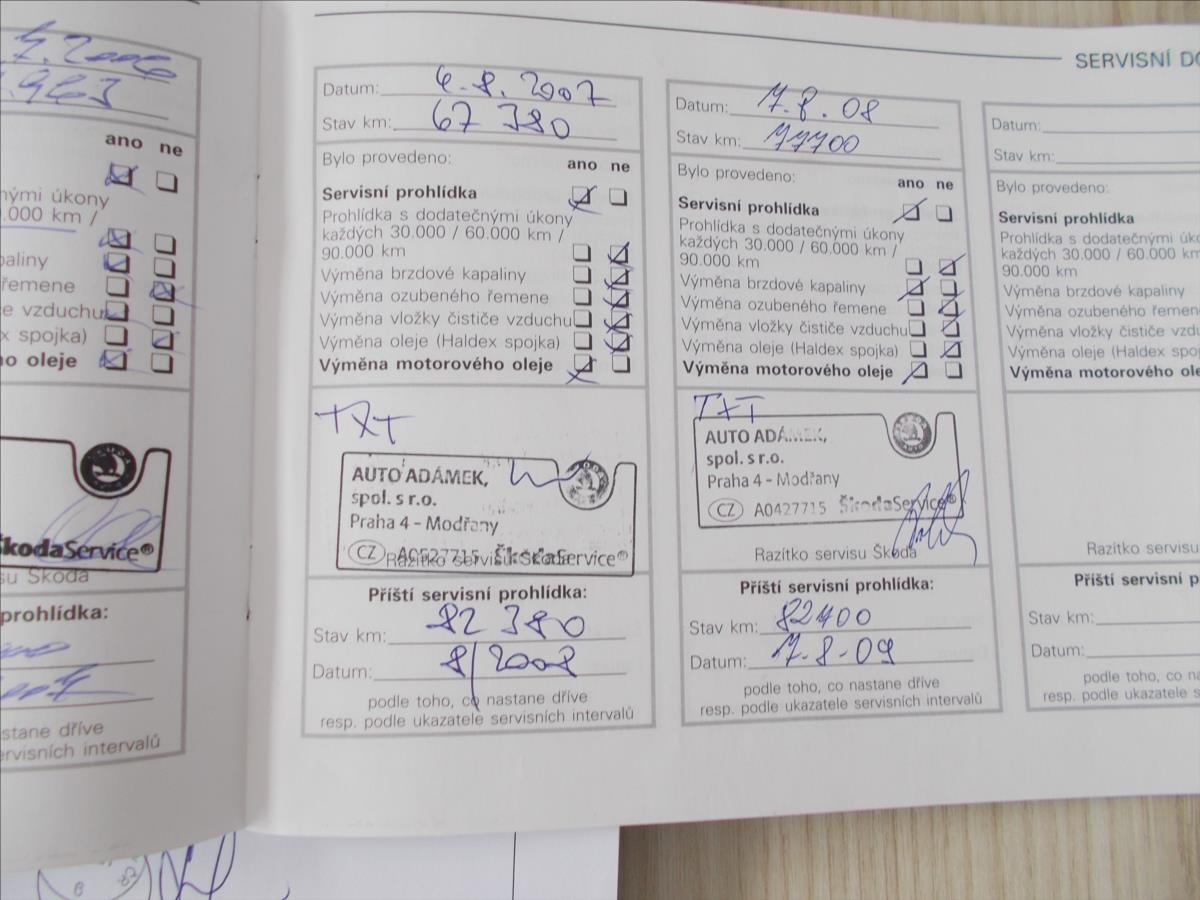 7.2006
.963
ano ne
nými úkony
.000 km /
paliny
řemene
če vzduchu
spojka)
ého oleje
ŠKODA
ŠkodaService®
su Škoda
prohlídka:
stane dříve
ervisních intervalů
SERVISNÍ DO
Datum: 6.8.2007
Stav km: 67 380
Bylo provedeno:
ano ne
Servisní prohlídka
Prohlídka s dodatečnými úkony
každých 30.000 / 60.000 km /
90.000 km
Výměna brzdové kapaliny
Výměna ozubeného řemene
Výměna vložky čističe vzduchu
Výměna oleje (Haldex spojka)
Výměna motorového oleje
TXT
AUTO ADÁMEK,
spol. s r.o.
Praha 4 - Modřany
CZ A0527715 ŠkodaService®
Razítko servisu Škoda
Příští servisní prohlídka:
Stav km: 82 380
Datum: 8/2008
podle toho, co nastane dříve
resp. podle ukazatele servisních intervalů
Datum: 17.8.08
Stav km: 77700
Bylo provedeno:
ano ne
Servisní prohlídka
Prohlídka s dodatečnými úkony
každých 30.000 / 60.000 km /
90.000 km
Výměna brzdové kapaliny
Výměna ozubeného řemene
Výměna vložky čističe vzduchu
Výměna oleje (Haldex spojka)
Výměna motorového oleje
TXT
AUTO ADÁMEK,
spol. s r.o.
Praha 4 - Modřany
CZ A0427715 ŠkodaService®
Razítko servisu Škoda
Příští servisní prohlídka:
Stav km: 82400
Datum: 17.8.09
podle toho, co nastane dříve
resp. podle ukazatele servisních intervalů
Datum:
Stav km:
Bylo provedeno:
Servisní prohlídka
Prohlídka s dodatečnými úko
každých 30.000 / 60.000 km
90.000 km
Výměna brzdové kapaliny
Výměna ozubeného řemene
Výměna vložky čističe vzd
Výměna oleje (Haldex spo
Výměna motorového ole
Razítko servisu
Příští servisní p
Stav km:
Datum:
podle to
resp. podle uka